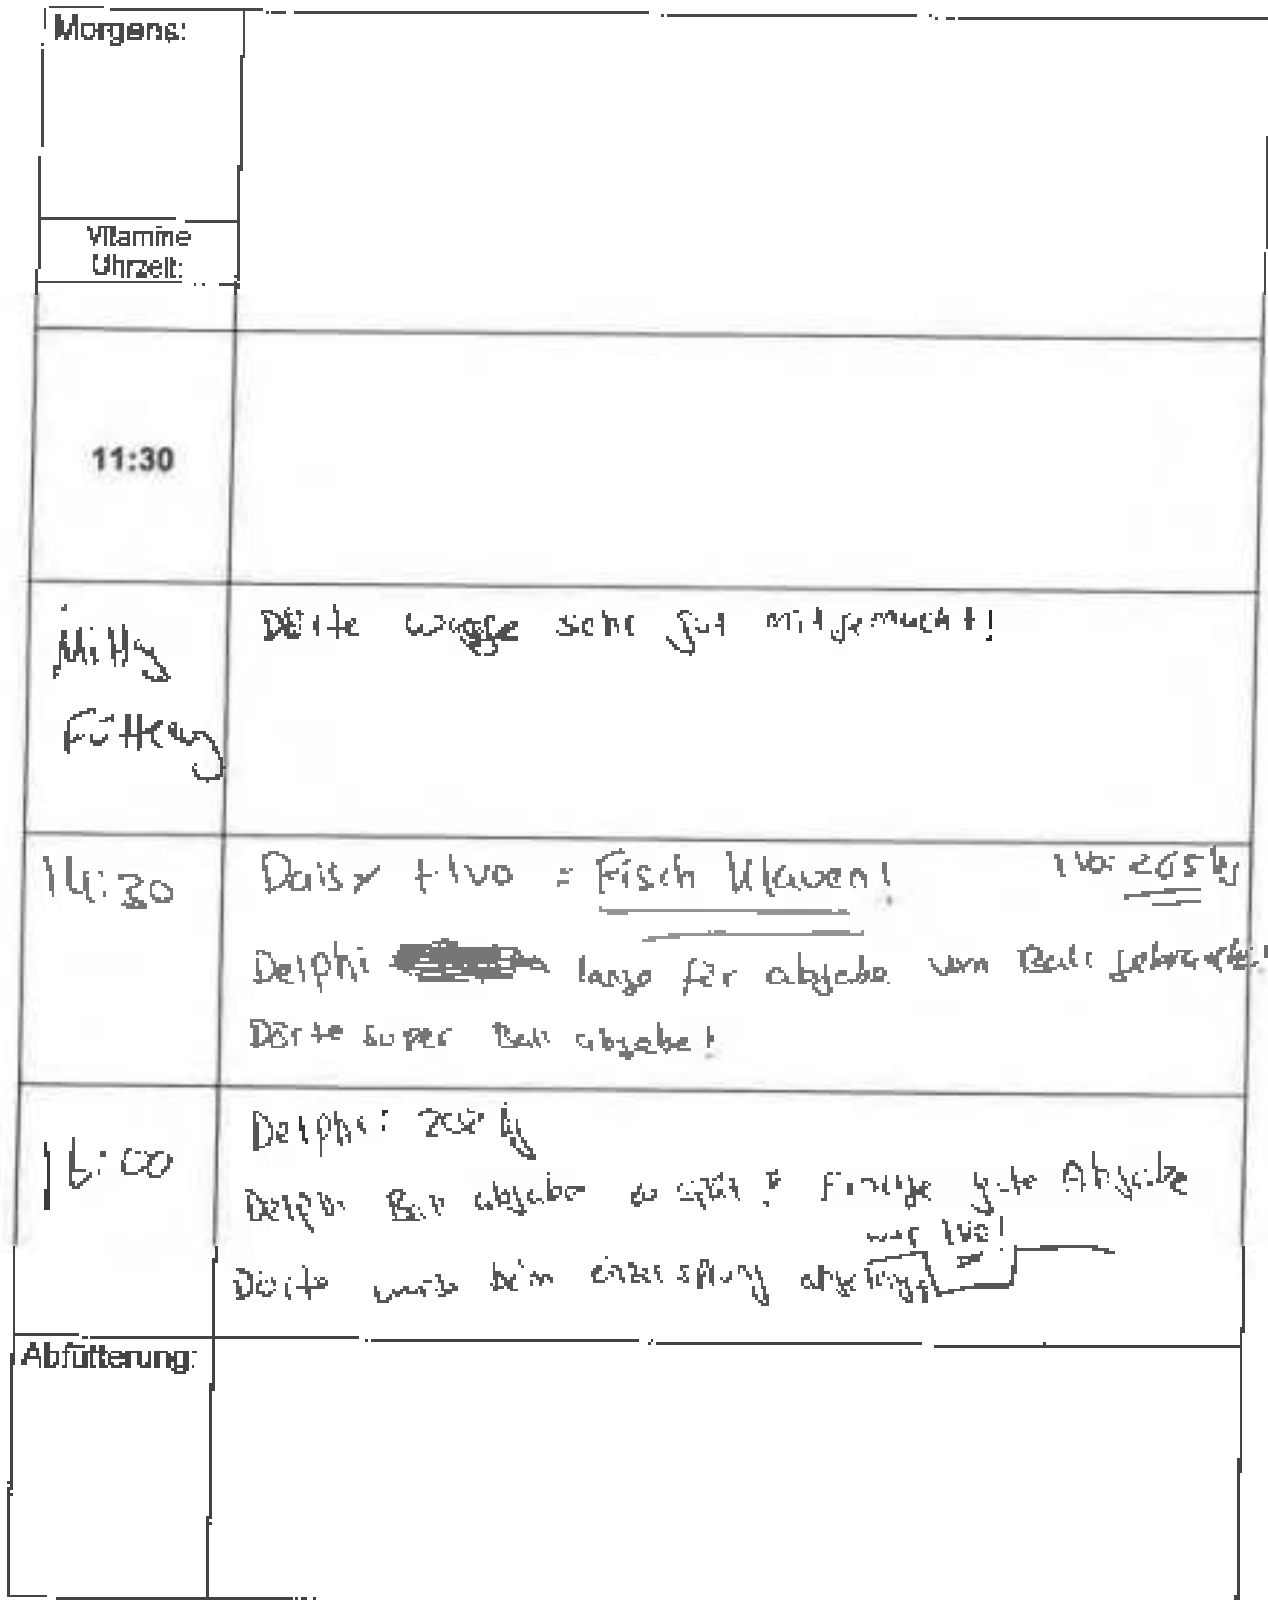 Morgens:
Vitamine
Uhrzeit:
11:30
Mittag
Fütterung
Dörte waage sehr gut mitgemacht!
14:30
Daisy + Ivo = Fisch klauen!
Ivo: 265 kg
Delphi lange für abgabe vom Ball gebraucht!
Dörte super Ball abgabe!
16:00
Delphi: kg
Delphi Ball abgabe zu spät gute Abgabe
war Ivo!
Dörte beim
Abfütterung: